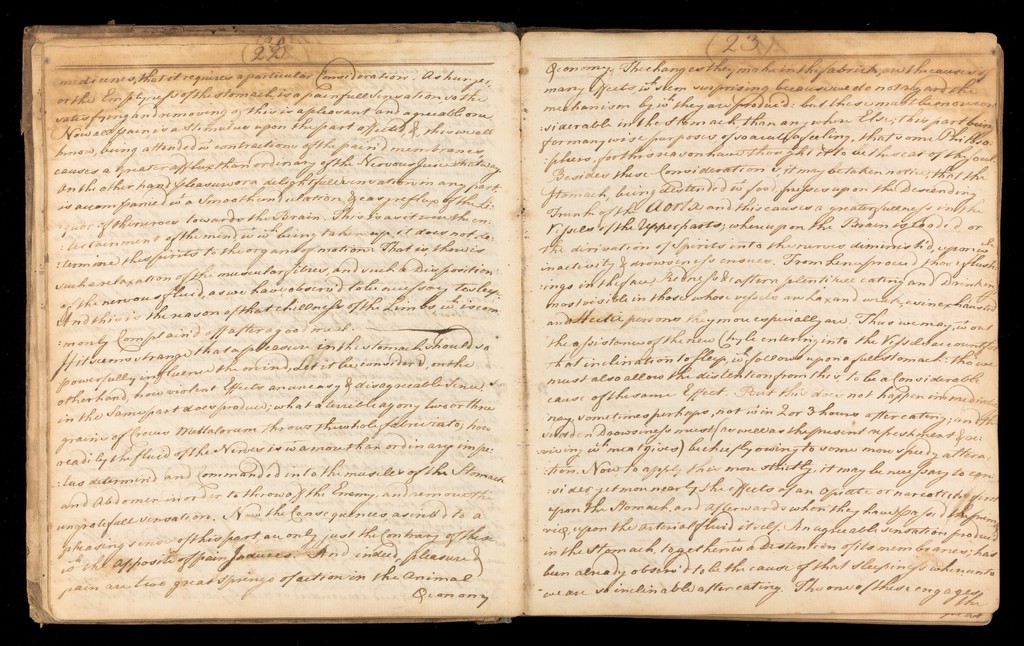 (22)
medicines, that it requires a particular Consideration. As hunger,
or the Emptyness of the stomach is a painfull Sensation so the
satisfying and removeing of this is a pleasant and agreeable one.
Now all pain is a Stimulus upon the part affected, & this we all
know, being attended wth contractions of the pain'd membranes,
causes a greater afflux than ordinary of the Nervous Juice that way.
On the other hand pleasure or a delightfull sensation in any part
is accompanied wth a Smooth undulation, & easy reflux of the Li-
:quor of the nerves towards the Brain. This is as it were the en-
:tertainment of the mind wth wch being taken up, it does not de-
:termine the spirits to the organs of motion. That is, there is
such a relaxation of the muscular fibres, and such a Disposition
of the nervous fluid, as we have observed to be necessary to sleep.
And this is the reason of that chillness of the Limbs wch is com-
:monly Complain'd off after a good meal.
If it seems strange that a pleasure in the stomach should so
powerfully influence the mind, let it be considered, on the
other hand, how violent Effects an uneasy & disagreeable sense
in the same part does produce; what a terrible agony two or three
grains of Crocus Mettalorum throws the whole fabrick into; how
readily the fluid of the Nerves is wth a more than ordinary impe-
:tus determin'd and Commanded into the muscles of the Stomach
and Abdomen in order to throw off the Enemy, and remove the
ungratefull sensation. Now the Consequences ascrib'd to a
pleasing sense of this part, are only just the Contrary of these
in the opposite of pain produces. And indeed, pleasure &
pain are two great springs of action in the Animal
Œconomy
(23)
Œconomy. The changes they make in the fabrick, are the causes of
many effects wch seem surprising because we do not regard the
mechanism by wch they are produced: but these must be more con-
:siderable in the stomach than any where Else; this part being
for many wise purposes of so acute a feeling, that some Philoso-
:phers, for this reason have thought it to be the seat of the soul.
Besides these Considerations, it may be taken notice, that the
Stomach, being distended wth food, presses upon the Descending
Trunk of the Aorta and thus causes a greater fullness in the
Vessels of the Upper parts; whereupon the Brain is loaded, or
the derivation of Spirits into the nerves diminish'd, upon wch
inactivity & drowsiness ensues. From hence proceed those flush-
:ings in the face Redness &c after a plentifull eating and Drinking
most visible in those whose vessels are Lax and weak, as in exhausted
and Hectic persons they more especially are. Thus we may, wthout
the assistance of the new Chyle entering into the Vessels account for
that inclination to sleep, wch follows upon a full stomach: tho we
must also allow the distention from this, to be a Considerable
cause of the same Effect. But this does not happen immediately
nay sometimes perhaps, not wthin 2 or 3 hours after eating; and the
sudden Drowsiness must (as well as the present refreshment & re-
:viving wch meat gives) be chiefly owing to some more speedy altera-
:tion. Now to apply this more strictly, it may be necessary to con-
:sider yet more nearly the effects of an opiate or narcotick, first
upon the Stomach, and afterwards when they have pass'd the primæ
viæ, upon the arterial fluid it self. An agreeable sensation produced
in the Stomach, together wth a Distention of its membranes; has
been already observ'd to be the cause of that sleepiness where unto
we are so inclinable after eating. The one of these engages
the